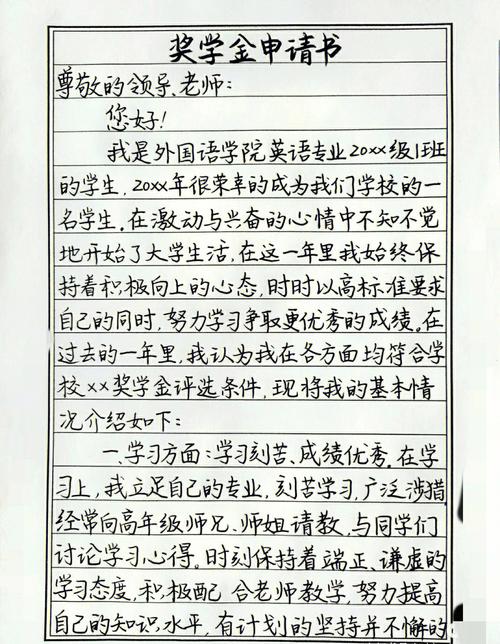 奖学金申请书
尊敬的领导、老师：
您好！
我是外国语学院英语专业20xx级1班
的学生，20xx年很荣幸的成为我们学校的一
名学生。在激动与兴奋的心情中不知不觉
地开始了大学生活，在这一年里我始终保
持着积极向上的心态，时时以高标准要求
自己的同时，努力学习争取更优秀的成绩。在
过去的一年里，我认为我在各方面均符合学
校xx奖学金评选条件，现将我的基本情
况介绍如下：
一、学习方面：学习刻苦、成绩优秀。在学
习上，我立足自己的专业，刻苦学习，广泛涉猎
经常向高年级师兄、师姐请教，与同学们
讨论学习心得。时刻保持着端正、谦虚的
学习态度，积极配 合老师教学，努力提高
自己的知识水平，有计划的坚持并不懈的